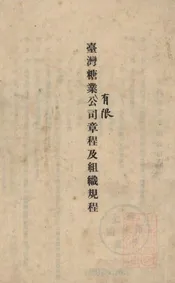 臺灣糖業公司章程及組織規程
有限